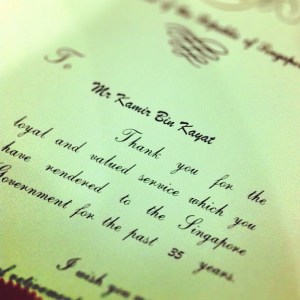 of the Republic of Singapore
To
Mr Kamir Bin Kayat
Thank you for the
loyal and valued service which you
have rendered to the Singapore
Government for the past 35 years.
I wish you